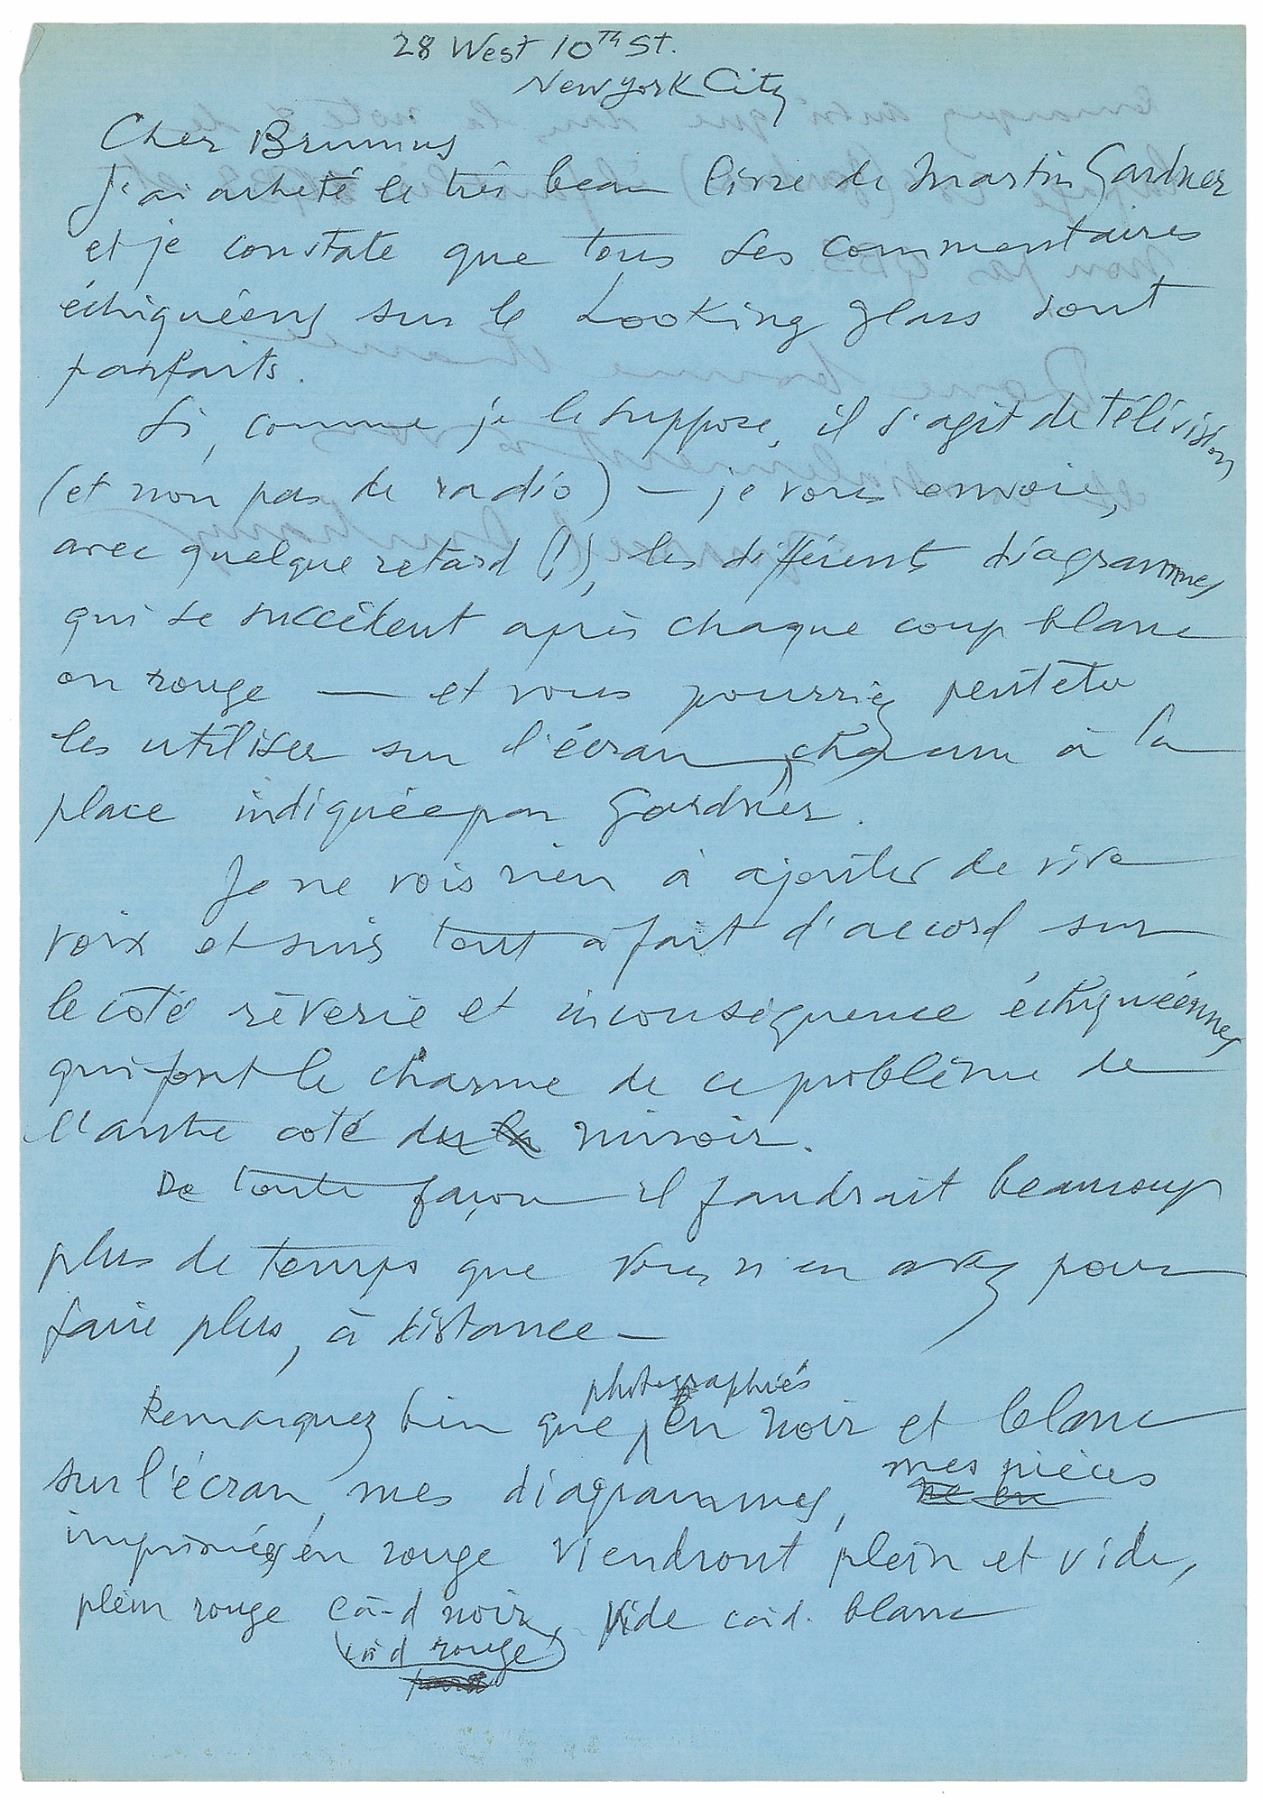 28 West 10TH St.
New York City
Cher Brunius
J'ai acheté le très beau livre de Martin Gardner
et je constate que tous les commentaires
échiquéens sur le Looking glass sont
parfaits.
Si, comme je le suppose, il s'agit de télévision
(et non pas de radio) — je vous envoie,
avec quelque retard (!), les différents diagrammes
qui se succèdent après chaque coup blanc
ou rouge — et vous pourriez peut être
les utiliser sur l'écran, chacun à la
place indiquée par Gardner.
Je ne vois rien à ajouter de vive
voix et suis tout à fait d'accord sur
le côté rêverie et inconséquence échiquéennes
qui font le charme de ce problème de
l'autre coté du la miroir.
De toute façon il faudrait beaucoup
plus de temps que vous n'en avez pour
faire plus, à distance —
photographiés
Remarquez bien que en noir et blanc
mes pièces
sur l'écran, mes diagrammes, ne en
imprimées en rouge viendront plein et vide,
plein rouge càd noir, vide càd. blanc
càd rouge